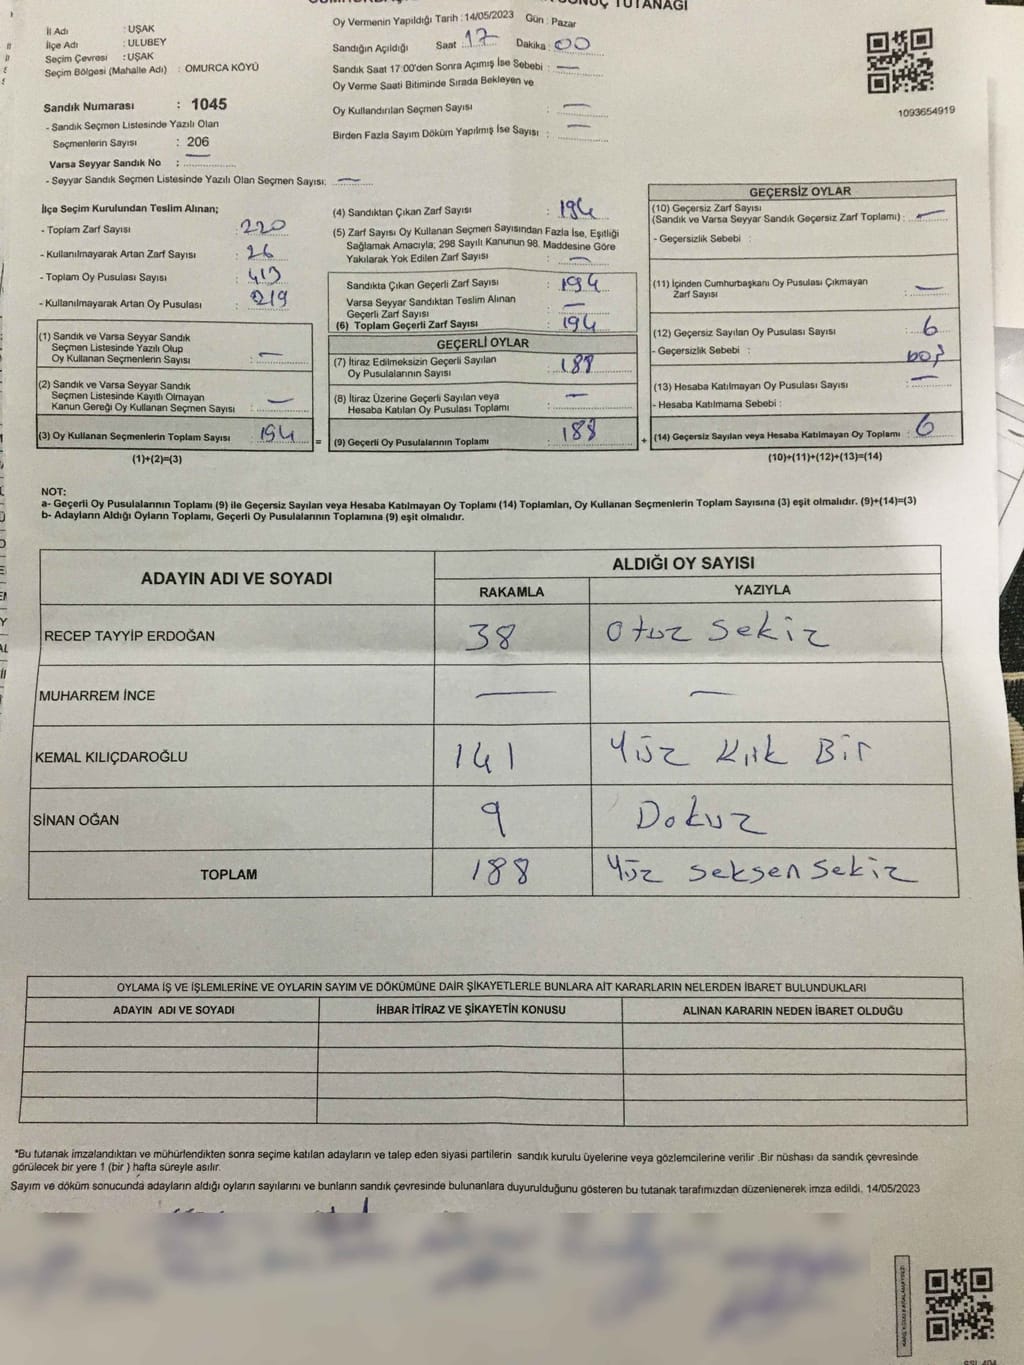 SONUÇ TUTANAĞI
İl Adı : UŞAK
İlçe Adı : ULUBEY
Seçim Çevresi : UŞAK
Seçim Bölgesi (Mahalle Adı) : OMURCA KÖYÜ
Sandık Numarası : 1045
- Sandık Seçmen Listesinde Yazılı Olan
Seçmenlerin Sayısı : 206
Varsa Seyyar Sandık No : —
- Seyyar Sandık Seçmen Listesinde Yazılı Olan Seçmen Sayısı: —
Oy Vermenin Yapıldığı Tarih : 14/05/2023 Gün : Pazar
Sandığın Açıldığı Saat : 17 Dakika : 00
Sandık Saat 17:00'den Sonra Açımış İse Sebebi : —
Oy Verme Saati Bitiminde Sırada Bekleyen ve
Oy Kullandırılan Seçmen Sayısı : —
Birden Fazla Sayım Döküm Yapılmış İse Sayısı : —
1093654919
İlçe Seçim Kurulundan Teslim Alınan;
- Toplam Zarf Sayısı : 220
- Kullanılmayarak Artan Zarf Sayısı : 26
- Toplam Oy Pusulası Sayısı : 413
- Kullanılmayarak Artan Oy Pusulası : 219
(1) Sandık ve Varsa Seyyar Sandık
Seçmen Listesinde Yazılı Olup
Oy Kullanan Seçmenlerin Sayısı : —
(2) Sandık ve Varsa Seyyar Sandık
Seçmen Listesinde Kayıtlı Olmayan
Kanun Gereği Oy Kullanan Seçmen Sayısı : —
(3) Oy Kullanan Seçmenlerin Toplam Sayısı : 194 =
(1)+(2)=(3)
(4) Sandıktan Çıkan Zarf Sayısı : 194
(5) Zarf Sayısı Oy Kullanan Seçmen Sayısından Fazla İse, Eşitliği
Sağlamak Amacıyla; 298 Sayılı Kanunun 98. Maddesine Göre
Yakılarak Yok Edilen Zarf Sayısı : —
Sandıkta Çıkan Geçerli Zarf Sayısı : 194
Varsa Seyyar Sandıktan Teslim Alınan
Geçerli Zarf Sayısı : —
(6) Toplam Geçerli Zarf Sayısı : 194
GEÇERLİ OYLAR
(7) İtiraz Edilmeksizin Geçerli Sayılan
Oy Pusulalarının Sayısı : 188
(8) İtiraz Üzerine Geçerli Sayılan veya
Hesaba Katılan Oy Pusulası Toplamı : —
(9) Geçerli Oy Pusulalarının Toplamı : 188 +
GEÇERSİZ OYLAR
(10) Geçersiz Zarf Sayısı
(Sandık ve Varsa Seyyar Sandık Geçersiz Zarf Toplamı) : —
- Geçersizlik Sebebi :
(11) İçinden Cumhurbaşkanı Oy Pusulası Çıkmayan
Zarf Sayısı : —
(12) Geçersiz Sayılan Oy Pusulası Sayısı : 6
- Geçersizlik Sebebi : boş
(13) Hesaba Katılmayan Oy Pusulası Sayısı : —
- Hesaba Katılmama Sebebi :
(14) Geçersiz Sayılan veya Hesaba Katılmayan Oy Toplamı : 6
(10)+(11)+(12)+(13)=(14)
NOT:
a- Geçerli Oy Pusulalarının Toplamı (9) ile Geçersiz Sayılan veya Hesaba Katılmayan Oy Toplamı (14) Toplamları, Oy Kullanan Seçmenlerin Toplam Sayısına (3) eşit olmalıdır. (9)+(14)=(3)
b- Adayların Aldığı Oyların Toplamı, Geçerli Oy Pusulalarının Toplamına (9) eşit olmalıdır.
ADAYIN ADI VE SOYADI ALDIĞI OY SAYISI
RAKAMLA YAZIYLA
RECEP TAYYİP ERDOĞAN 38 Otuz Sekiz
MUHARREM İNCE — —
KEMAL KILIÇDAROĞLU 141 Yüz Kırk Bir
SİNAN OĞAN 9 Dokuz
TOPLAM 188 Yüz Seksen Sekiz
OYLAMA İŞ VE İŞLEMLERİNE VE OYLARIN SAYIM VE DÖKÜMÜNE DAİR ŞİKAYETLERLE BUNLARA AİT KARARLARIN NELERDEN İBARET BULUNDUKLARI
ADAYIN ADI VE SOYADI İHBAR İTİRAZ VE ŞİKAYETİN KONUSU ALINAN KARARIN NEDEN İBARET OLDUĞU
"Bu tutanak imzalandıktan ve mühürlendikten sonra seçime katılan adayların ve talep eden siyasi partilerin sandık kurulu üyelerine veya gözlemcilerine verilir .Bir nüshası da sandık çevresinde
görülecek bir yere 1 (bir ) hafta süreyle asılır.
Sayım ve döküm sonucunda adayların aldığı oyların sayılarını ve bunların sandık çevresinde bulunanlara duyurulduğunu gösteren bu tutanak tarafımızdan düzenlenerek imza edildi. 14/05/2023